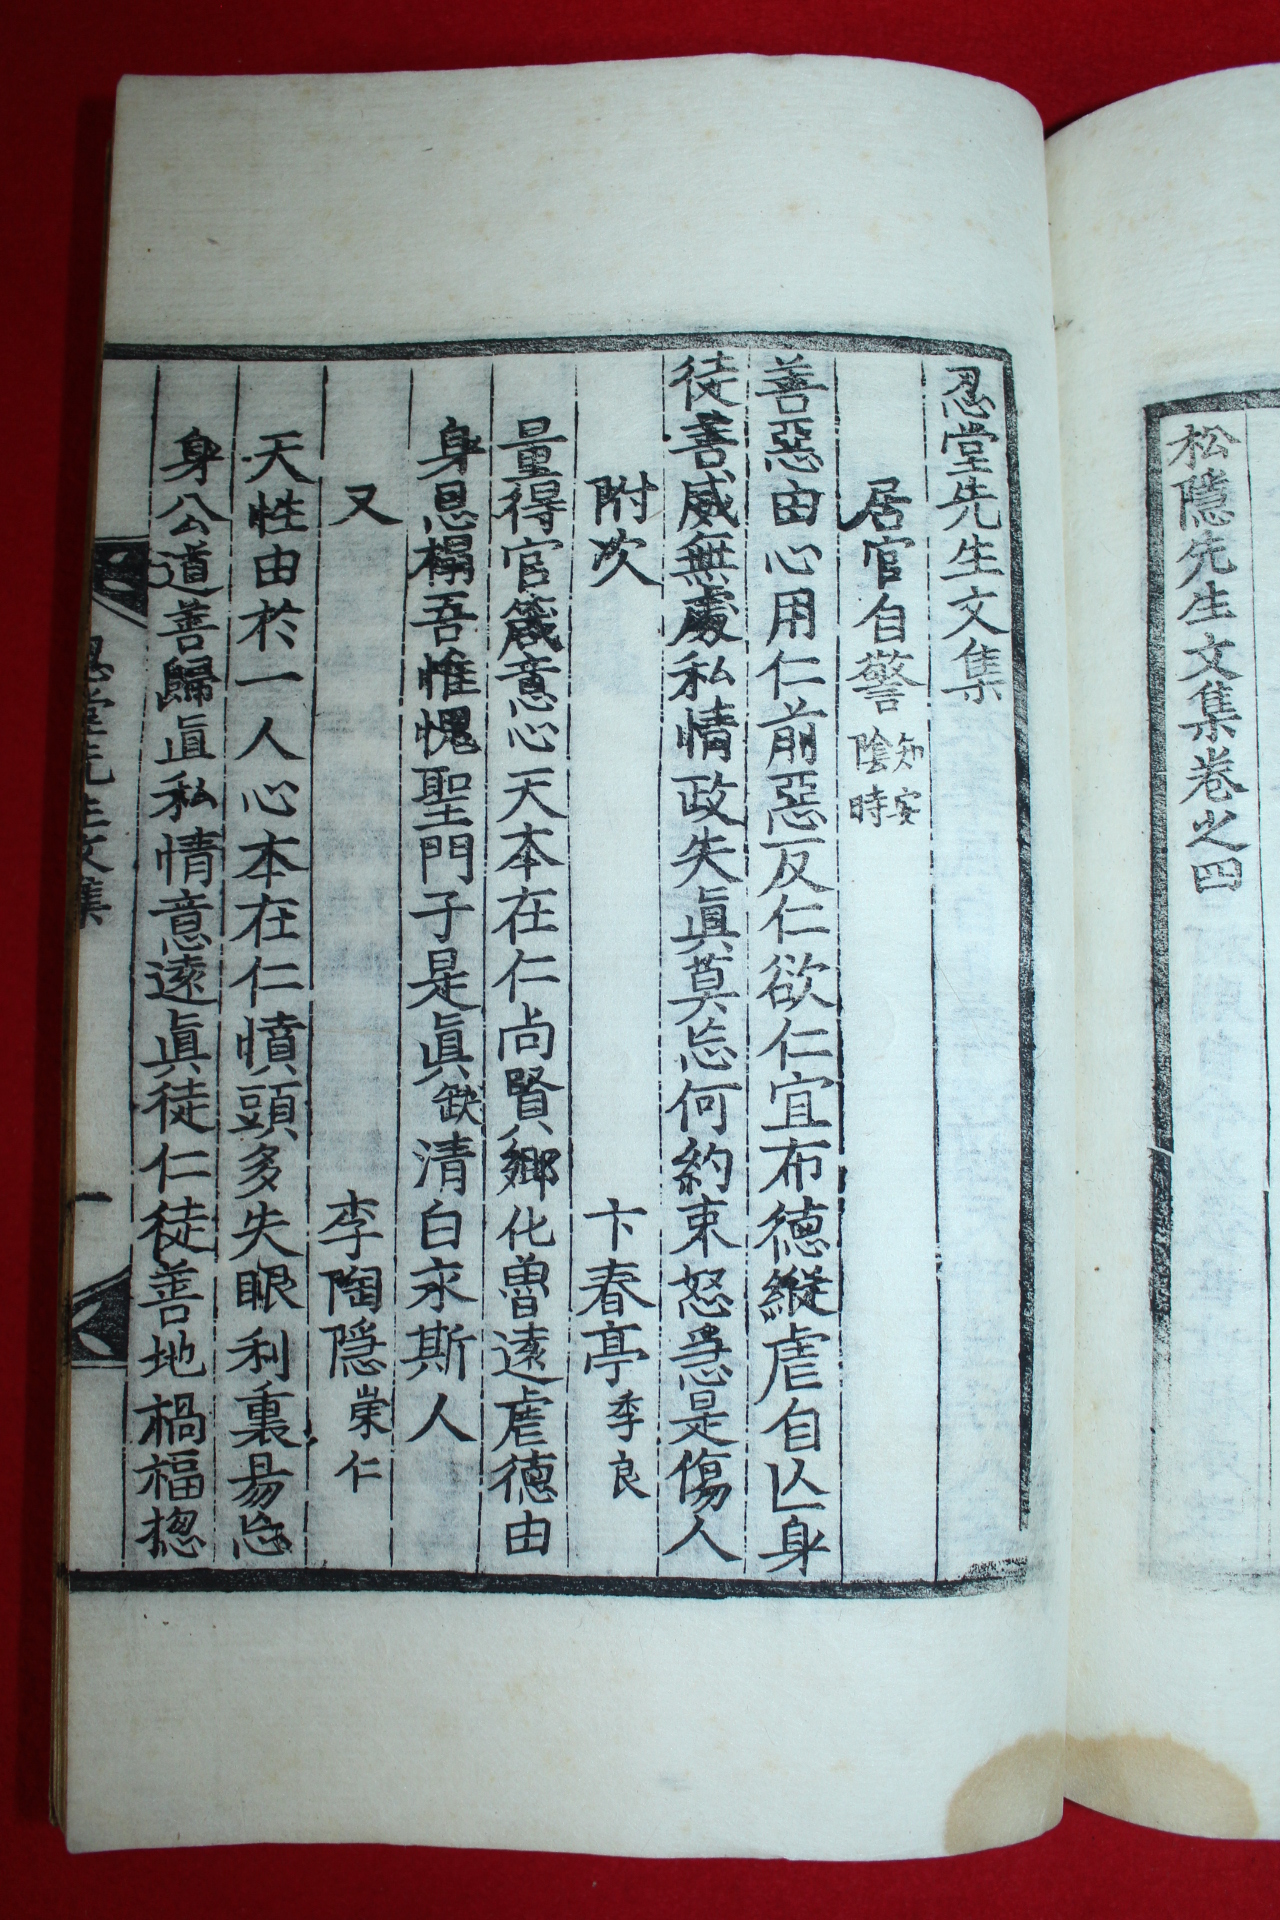 松隱先生文集卷之四
忍堂先生文集
居官自警 知安陰時
善惡由心用仁前惡反仁欲仁宜布德縱虐自亾身
徒善威無處私情政失眞莫忘何約束怒急是傷人
附次 卞春亭季良
量得官箴意心天本在仁尙賢鄕化曾遠虐德由
身恩榻吾惟愧聖門子是眞缺淸白永斯人
又 李陶隐崇仁
天性由於一人心本在仁憤頭多失眼利裏易忘
身公道善歸眞私情意遠眞徒仁徒善地禍福揔
忍堂先生文集 一